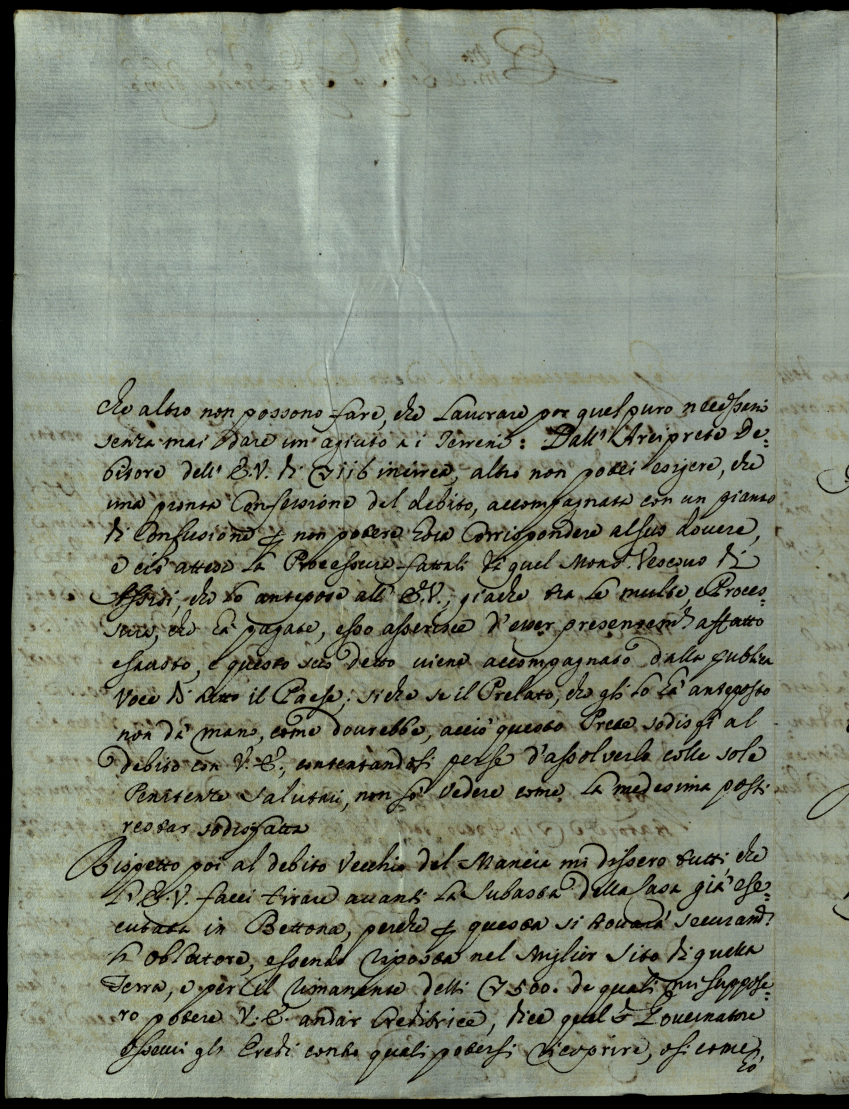 che altro non possono fare, che Lavorare per quel puro necessario
senza mai dare un' agiuto a i Terreni: Dall' Arciprete De=
bitore dell' E.V. di 116 incirca, altro non potei esigere, che
una pronta Confessione del debito, accompagnata con un pianto
di Confusione p non potere corrispondere al suo dovere,
e ciò attese Le Processure fattali da quel Mons. Vescovo di
Assisi, che lo antepose all' E.V., giache tra Le multe, e Proces=
sure, che hà pagate, esso asserisce d'esser presentem.te affatto
esausto, e questo suo detto viene accompagnato dalla publica
Voce di tutto il Paese; si che se il Prelato, che gli lo hà anteposto
non dà mano, come dovrebbe, acciò questo Prete sodisfi al
debito con V.E., contentandosi perse d'assolverlo colle sole
Penitenze salutari, non sò vedere come La medesima possi
restar sodisfatta
Rispetto poi al debito Vecchio del Mancia mi dissero tutti, che
L'E.V. facci tirare avanti La Subasta della Casa già ese=
cutata in Bettona, perche p questa si trovarà securam.te
l' Oblatore, essendo riposta nel Miglior Sito di quella
Terra, e per il rimanente delli 500. de quali mi suppose=
ro potere V.E. andar Creditrice, dice quel Governatore
esservi gli Eredi contro quali potersi ricoprire, e si come